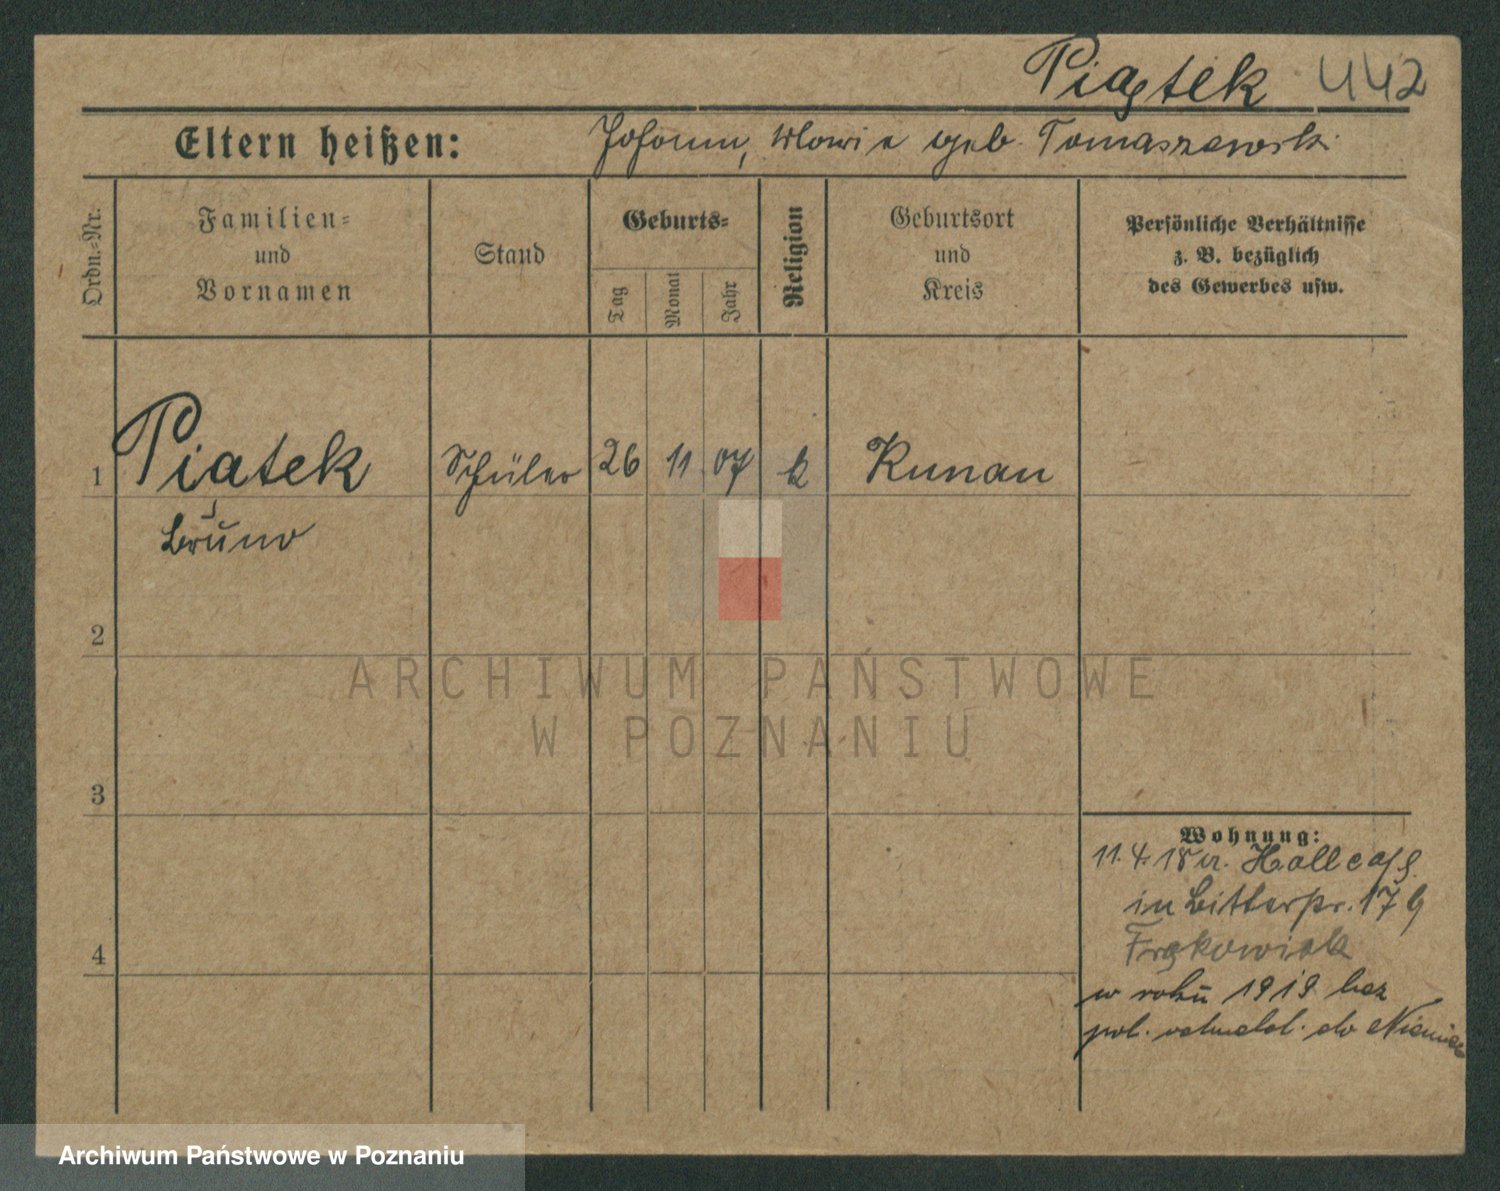 Piątek 442
Eltern heißen: Johann, Marie geb. Tomaszewsk.
Ordn.-Nr.
Familien-
und
Vornamen
Stand
Geburts-
Tag
Monat
Jahr
Religion
Geburtsort
und
Kreis
Persönliche Verhältnisse
z. B. bezüglich
des Gewerbes usw.
1 Piatek Schüler 26 11 07 k Kunau
Bruno
2
3
4
Wohnung:
11.4.18 v.
in Bitterstr. 17 b
Frąkowiak
w roku 1919 bez
pol. odmeld. do Niemiec
ARCHIWUM PAŃSTWOWE
W POZNANIU
Archiwum Państwowe w Poznaniu